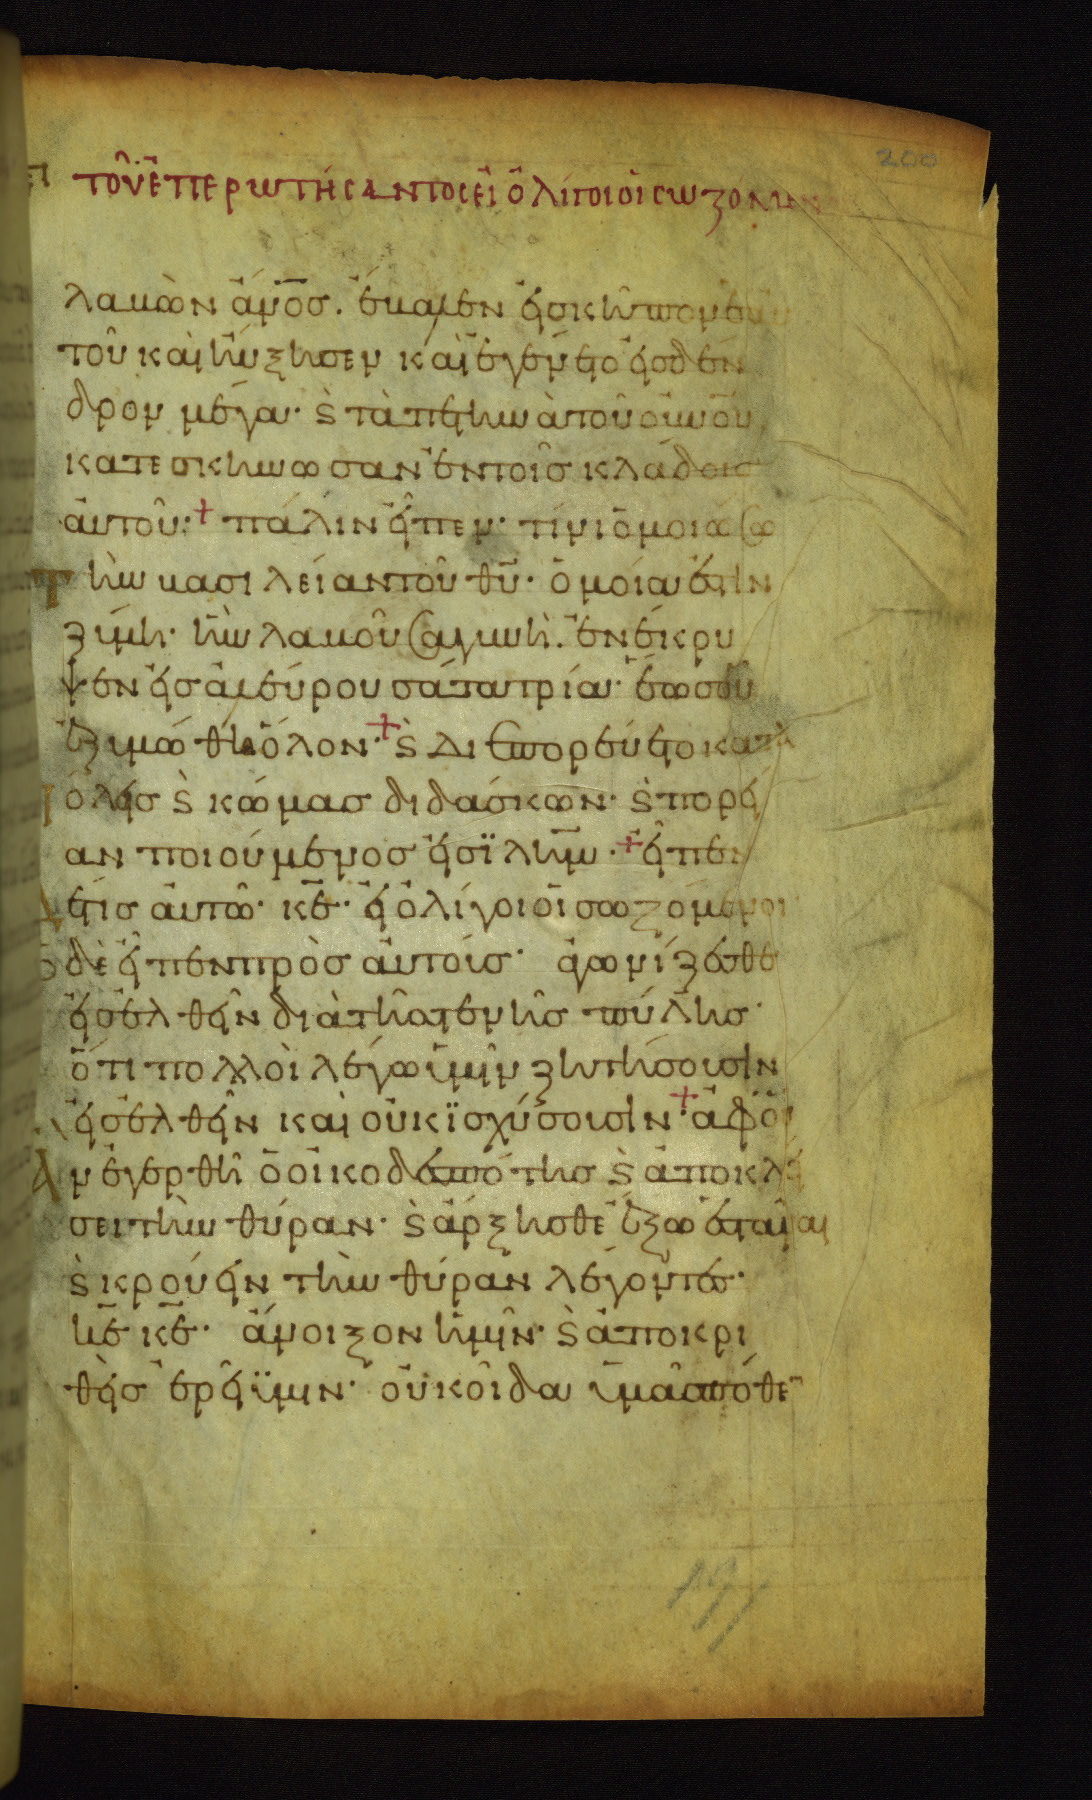 200
τοῦ ἐπερωτήσαντος εἰ ὀλίγοι οἱ σωζόμεν
λαβὼν ἄνο̅σ. ἔβαλεν εἰσ κῆπον ἑαυ
τοῦ καὶ ηὔξησεν καὶ ἐγένετο εἰσ δέν
δρον μέγα· ϗ τὰ πετηνὰ τοῦ οὐνοῦ
κατεσκήνωσαν ἐν τοῖσ κλάδοισ
αὐτοῦ· + πάλιν εἶπεν· τίνι ὁμοιώσω
τὴν βασιλείαν τοῦ θυ̅· ὁμοία ἐστὶν
ζύμη· ἣν λαβοῦσα γυνὴ. ἐνέκρυ
ψεν εἰσ ἀλεύρου σάτα τρία· ἕωσ οὗ
ἐζυμώθη ὅλον· + ϗ διεπορεύετο κατὰ
πόλεισ ϗ κώμασ διδάσκων· ϗ πορεί
αν ποιούμενοσ εἰσ ϊλη̅μ· + εἶπεν
δέ τισ αὐτῶ· κε̅· εἰ ὀλίγοι οἱ σωζόμενοι
ὁ δὲ εἶπεν πρὸσ αὐτούσ· ἀγωνίζεσθε
εἰσελθεῖν διὰ τῆσ στενῆσ πύλησ·
ὅτι πολλοὶ λέγω ὑμῖν ζητήσουσιν
εἰσελθεῖν καὶ οὐκ ϊσχύσουσιν· + ἀφ οὗ
ἂν ἐγερθῆ ὁ οἰκοδεσπότησ ϗ ἀποκλεί
σει τὴν θύραν· ϗ ἄρξησθε ἔξω ἑστάναι
ϗ κρούειν τὴν θύραν λέγοντεσ·
κε̅ κε̅· ἄνοιξον ἡμῖν· ϗ ἀποκρι
θεὶσ ἐρεῖ ϋμῖν· οὐκ οἶδα ὑμᾶσ πόθε
191